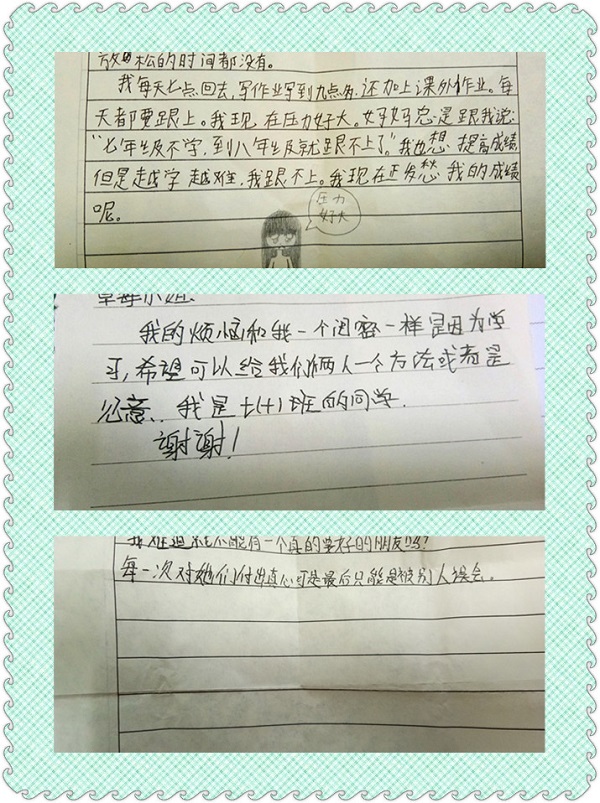 放松的时间都没有。
我每天七点回去,写作业写到九点多,还加上课外作业。每
天都要跟上。我现在压力好大。妈妈总是跟我说:
“七年级不学,到八年级就跟不上了”。我也想提高成绩
但是越学越难,我跟不上。我现在正发愁我的成绩
呢。
压力
好大
草莓小姐:
我的烦恼和我一个闺密一样是因为学
习,希望可以给我们俩人一个方法或者是
我是七(十)班的同学.
謝謝!
我难道就不能有一个真的 好的朋友吗?
每一次对她们付出真心可是最后只能是被别人误会。